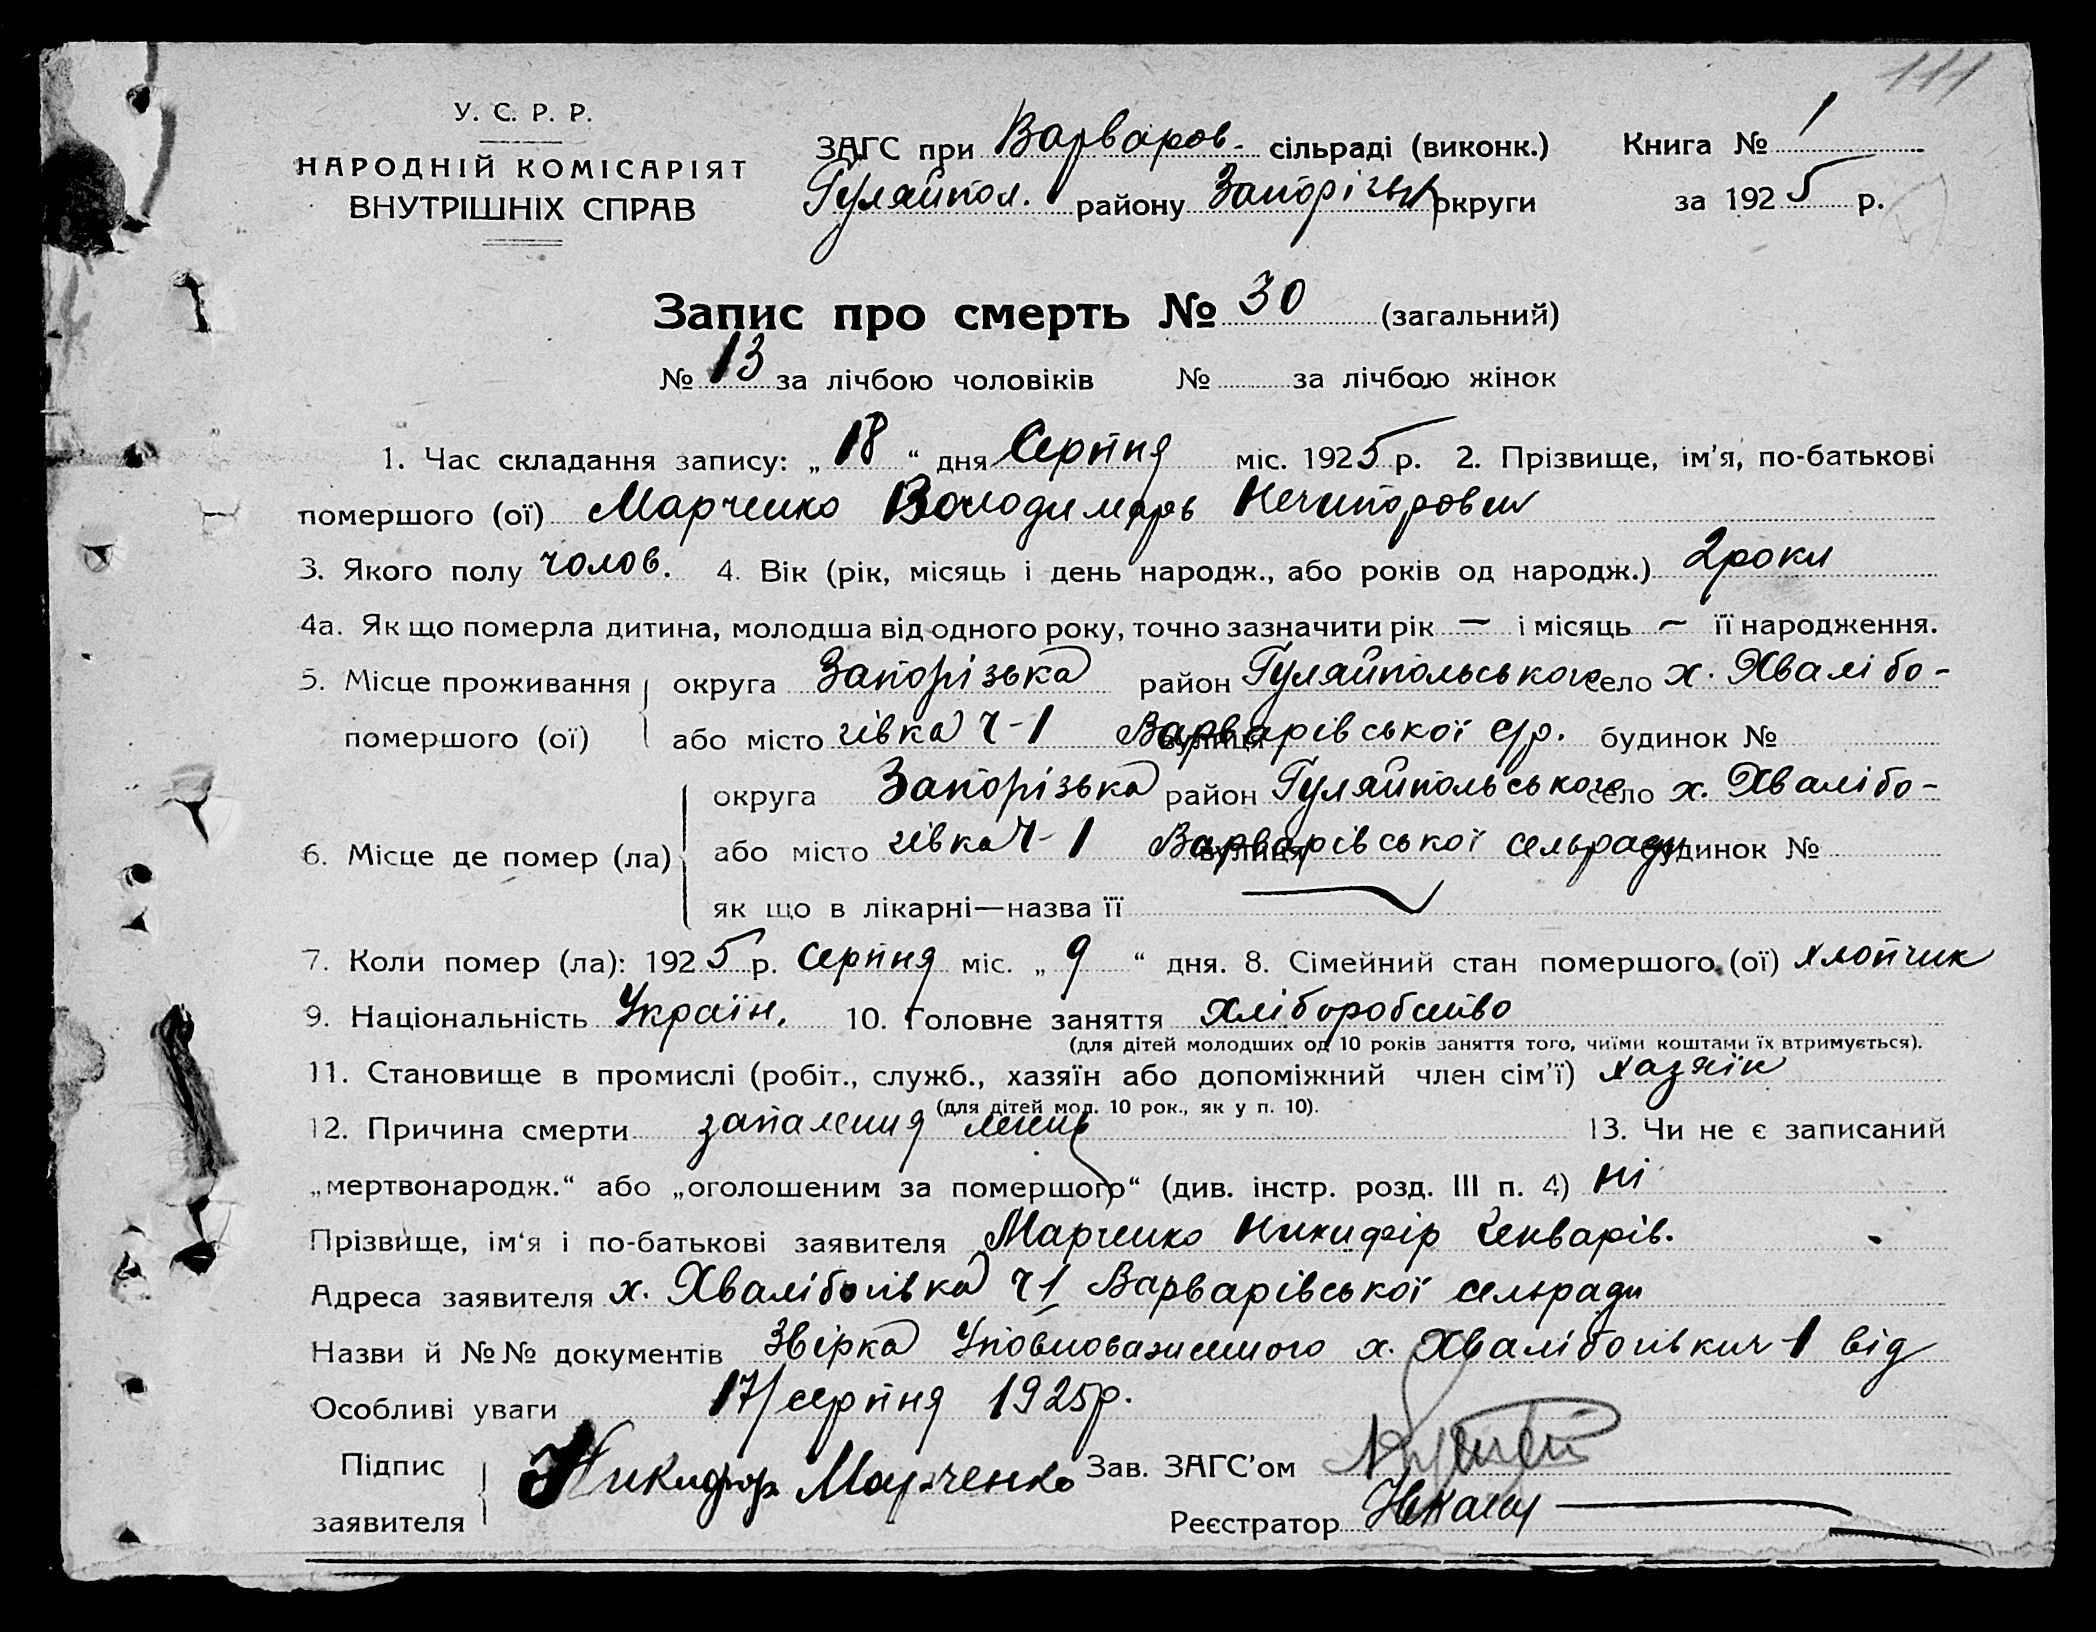 111
У. С. Р. Р.
НАРОДНІЙ КОМІСАРІЯТ
ВНУТРІШНІХ СПРАВ
ЗАГС при Варваров. сільраді (виконк.) Книга № 1
Гуляйпол. району Запорізьк округи за 1925 р.
Запис про смерть № 30 (загальний)
№ 13 за лічбою чоловіків № за лічбою жінок
1. Час складання запису: „18“ дня Серпня міс. 1925 р. 2. Прізвище, ім'я, по-батькові
помершого (ої) Марченко Володимирь Нечипорович
3. Якого полу чолов. 4. Вік (рік, місяць і день народж., або років од народж.) 2 роки
4а. Як що померла дитина, молодша від одного року, точно зазначити рік — і місяць — її народження.
5. Місце проживання округа Запорізька район Гуляйпольського село х. Хвалібо-
помершого (ої) або місто гівка ч-1 вулиця Варварівської с/р. будинок №
округа Запорізька район Гуляйпольського село х. Хвалібо-
6. Місце де помер (ла) або місто гівка ч-1 вулиця Варварівської сельради будинок №
як що в лікарні—назва її
7. Коли помер (ла): 1925 р. серпня міс. „9“ дня. 8. Сімейний стан помершого (ої) хлопчик
9. Національність Україн. 10. Головне заняття хліборобство
(для дітей молодших од 10 років заняття того, чиїми коштами їх втримується).
11. Становище в промислі (робіт., служб., хазяїн або допоміжний член сім'ї) хазяїн
(для дітей мол. 10 рок., як у п. 10).
12. Причина смерти запалення легень 13. Чи не є записаний
„мертвонародж.“ або „оголошеним за помершого“ (див. інстр. розд. III п. 4) ні
Прізвище, ім'я і по-батькові заявителя Марченко Никифір
Адреса заявителя х. Хвалібогівка ч 1 Варварівської сельради
Назви й №№ документів Звірка Уповноваженного х. Хвалібогівки ч 1 від
Особливі уваги 17/серпня 1925 р.
Підпис
заявителя Никифор Марченко Зав. ЗАГС'ом
Реєстратор